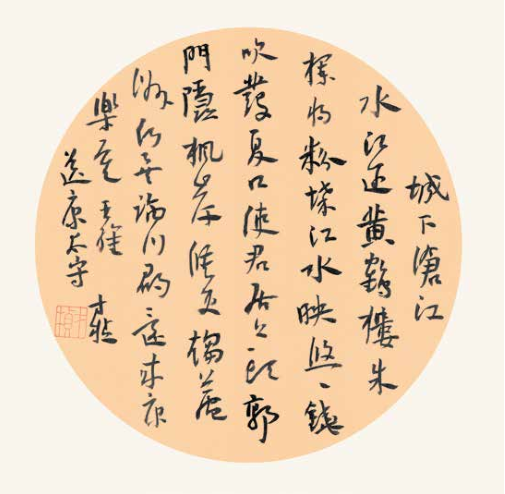 城下滄江
水江邊黃鶴樓朱
欄將粉堞江水映悠々鐃
吹發夏口使君居上頭郭
門隱楓岸候吏趨蘆
洲何異臨川郡還勞康
樂侯 王維
送康太守